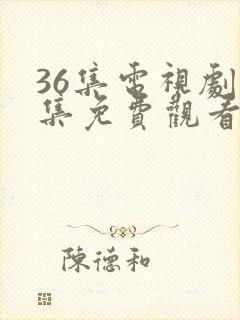 36集電視劇
集免費觀看
陳德和